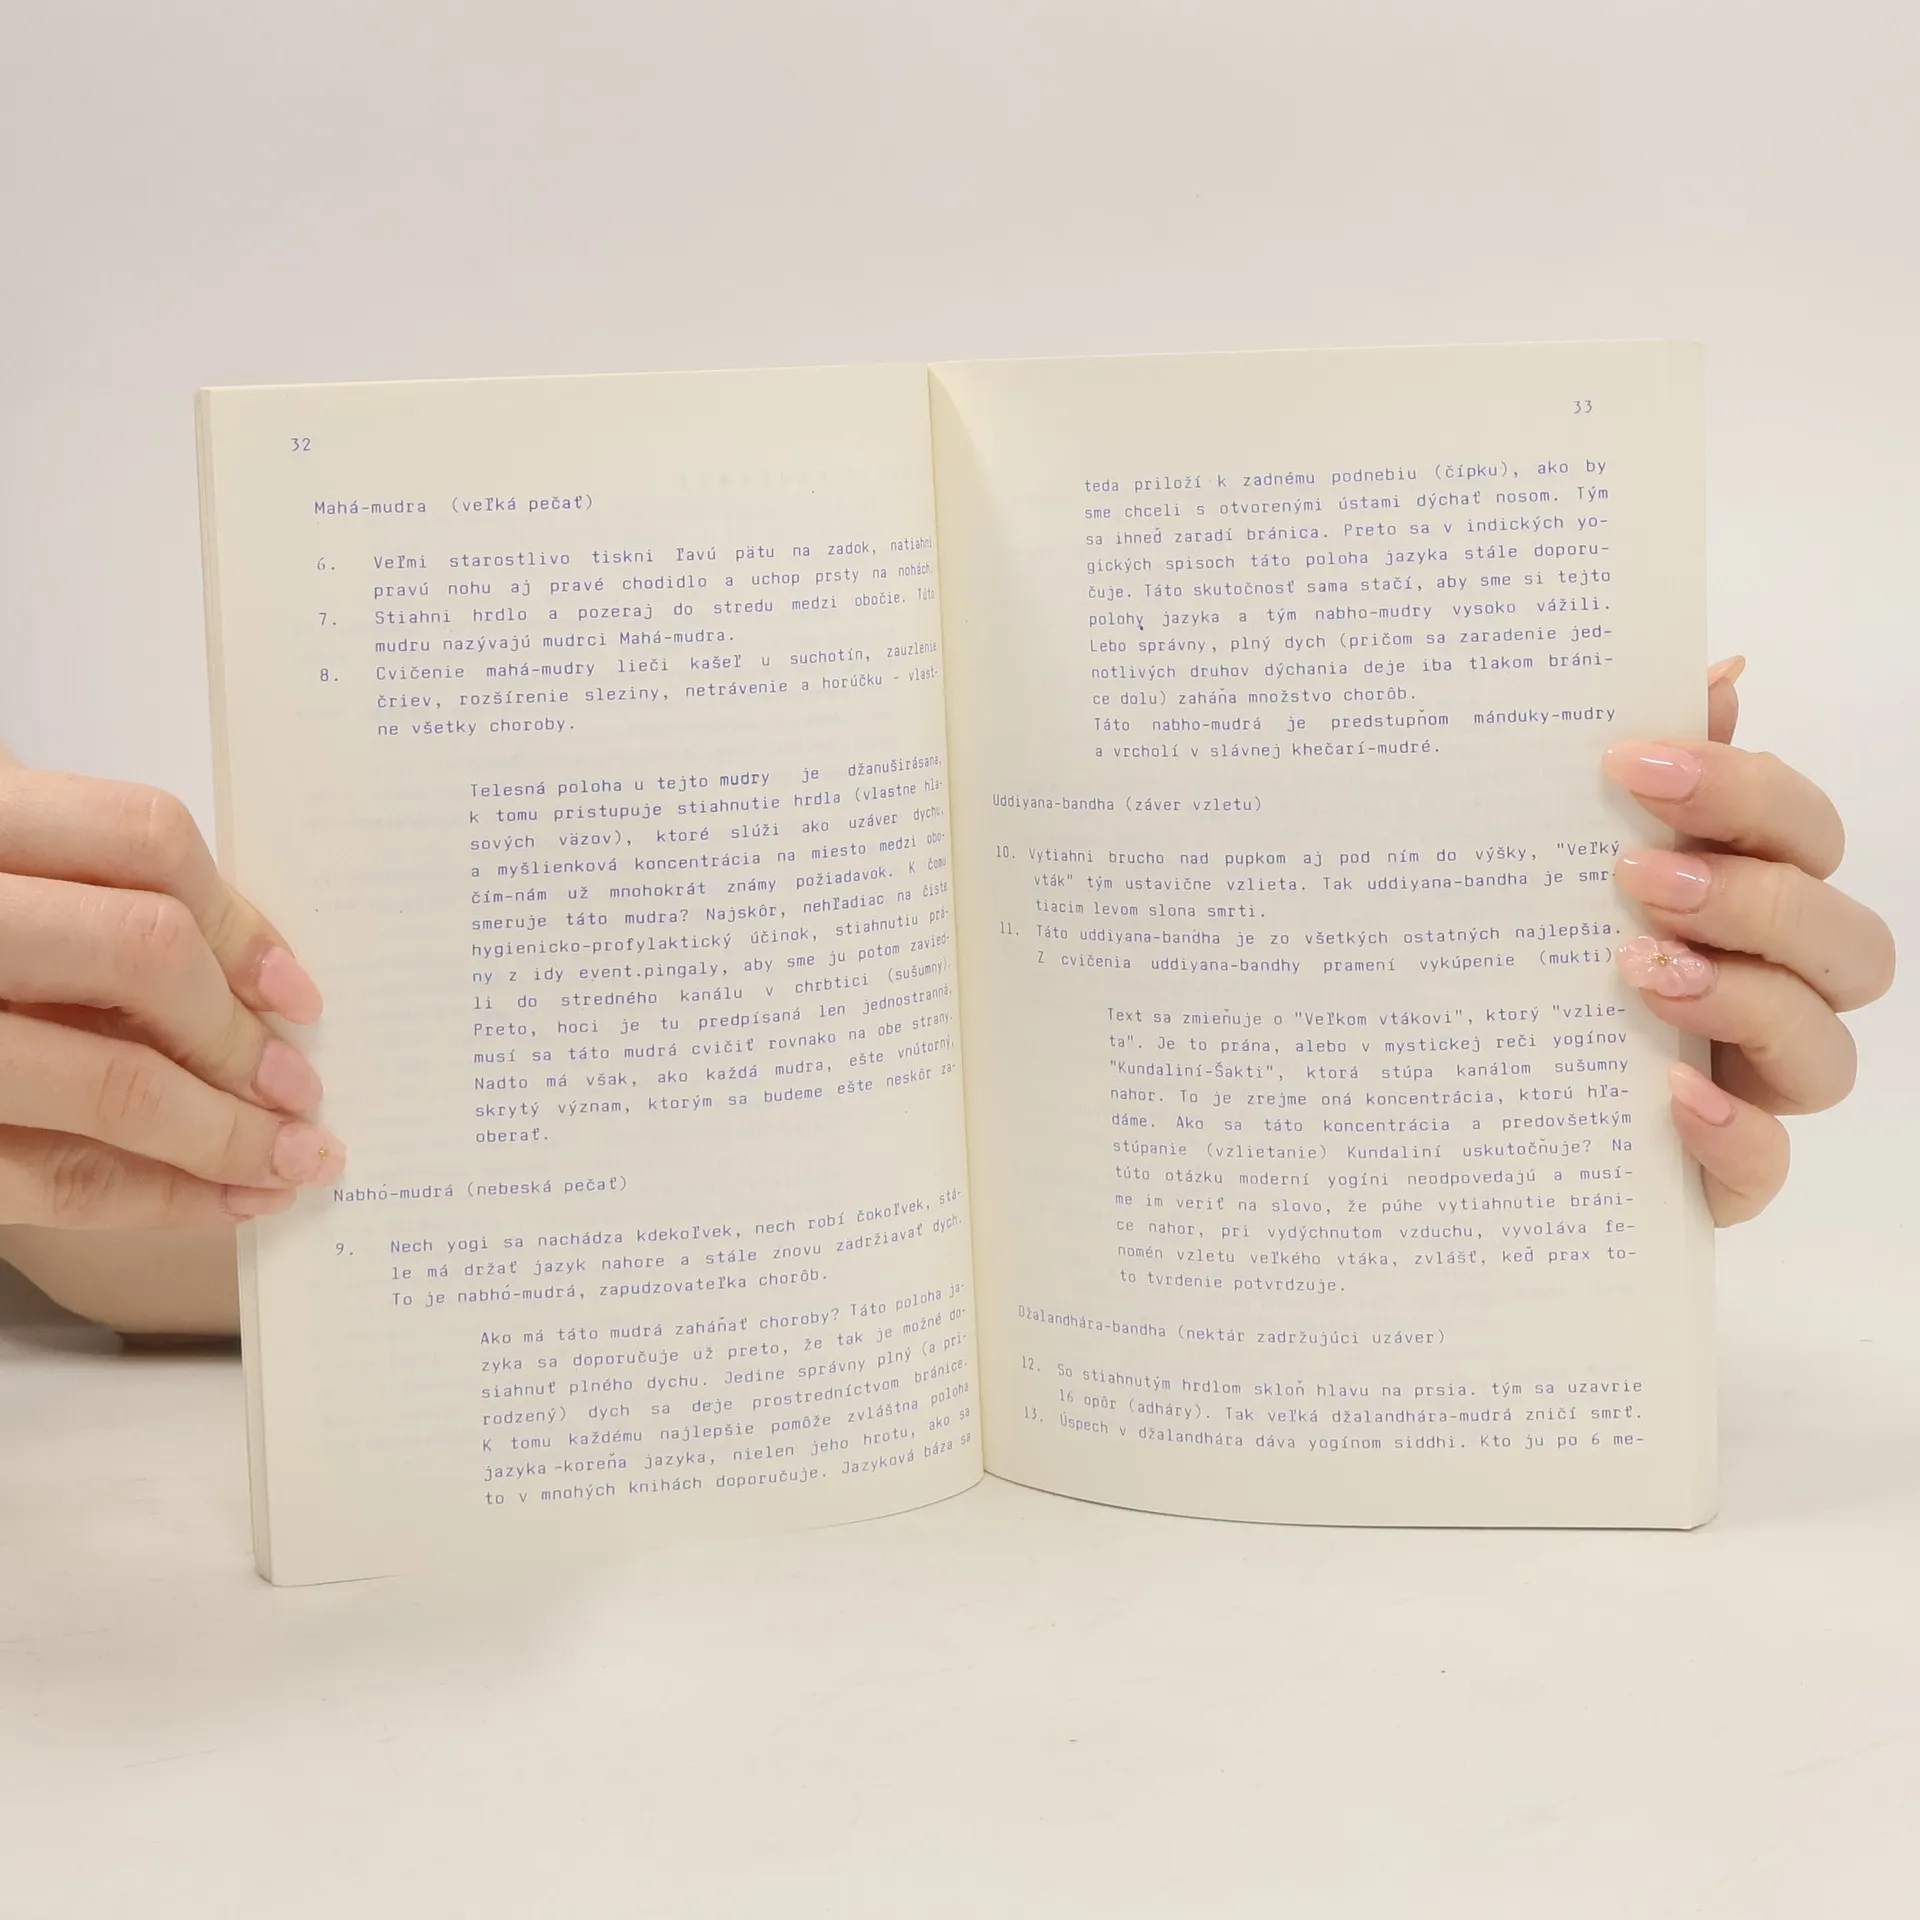 32
Mahá-mudra (veľká pečať)
6. Veľmi starostlivo tiskni ľavú pätu na zadok, natiahni
pravú nohu aj pravé chodidlo a uchop prsty na nohách.
7. Stiahni hrdlo a pozeraj do stredu medzi obočie. Túto
mudru nazývajú mudrci Mahá-mudra.
8. Cvičenie mahá-mudry lieči kašeľ u suchotín, zauzlenie
čriev, rozšírenie sleziny, netrávenie a horúčku - vlast-
ne všetky choroby.
Telesná poloha u tejto mudry je džanuširásana,
k tomu pristupuje stiahnutie hrdla (vlastne hla-
sových väzov), ktoré slúži ako uzáver dychu.
a myšlienková koncentrácia na miesto medzi obo-
čím-nám už mnohokrát známy požiadavok. K čomu
smeruje táto mudra? Najskôr, nehľadiac na čiste
hygienicko-profylaktický účinok, stiahnutiu prá-
ny z idy event.pingaly, aby sme ju potom zavied-
li do stredného kanálu v chrbtici (sušumny).
Preto, hoci je tu predpísaná len jednostranná,
musí sa táto mudrá cvičiť rovnako na obe strany.
Nadto má však, ako každá mudra, ešte vnútorný,
skrytý význam, ktorým sa budeme ešte neskôr za-
oberať.
Nabhó-mudrá (nebeská pečať)
9. Nech yogi sa nachádza kdekoľvek, nech robí čokoľvek, stá-
le má držať jazyk nahore a stále znovu zadržiavať dych.
To je nabhó-mudrá, zapudzovateľka chorôb.
Ako má táto mudrá zaháňať choroby? Táto poloha ja-
zyka sa doporučuje už preto, že tak je možné do-
siahnuť plného dychu. Jedine správny plný (a pri-
rodzený) dych sa deje prostredníctvom bránice.
K tomu každému najlepšie pomôže zvláštna poloha
jazyka -koreňa jazyka, nielen jeho hrotu, ako sa
to v mnohých knihách doporučuje. Jazyková báza sa
33
teda priloží k zadnému podnebiu (čípku), ako by
sme chceli s otvorenými ústami dýchať nosom. Tým
sa ihneď zaradí bránica. Preto sa v indických yo-
gických spisoch táto poloha jazyka stále doporu-
čuje. Táto skutočnosť sama stačí, aby sme si tejto
polohy jazyka a tým nabho-mudry vysoko vážili.
Lebo správny, plný dych (pričom sa zaradenie jed-
notlivých druhov dýchania deje iba tlakom bráni-
ce dolu) zaháňa množstvo chorôb.
Táto nabho-mudrá je predstupňom mánduky-mudry
a vrcholí v slávnej khečarí-mudré.
Uddiyana-bandha (záver vzletu)
10. Vytiahni brucho nad pupkom aj pod ním do výšky, "Veľký
vták" tým ustavične vzlieta. Tak uddiyana-bandha je smr-
tiacim levom slona smrti.
11. Táto uddiyana-bandha je zo všetkých ostatných najlepšia.
Z cvičenia uddiyana-bandhy pramení vykúpenie (mukti)
Text sa zmieňuje o "Veľkom vtákovi", ktorý "vzlie-
ta". Je to prána, alebo v mystickej reči yogínov
"Kundaliní-Šakti", ktorá stúpa kanálom sušumny
nahor. To je zrejme oná koncentrácia, ktorú hľa-
dáme. Ako sa táto koncentrácia a predovšetkým
stúpanie (vzlietanie) Kundaliní uskutočňuje? Na
túto otázku moderní yogíni neodpovedajú a musí-
me im veriť na slovo, že púhe vytiahnutie bráni-
ce nahor, pri vydýchnutom vzduchu, vyvoláva fe-
nomén vzletu veľkého vtáka, zvlášť, keď prax to-
to tvrdenie potvrdzuje.
Džalandhára-bandha (nektár zadržujúci uzáver)
12. So stiahnutým hrdlom skloň hlavu na prsia. tým sa uzavrie
16 opôr (adháry). Tak veľká džalandhára-mudrá zničí smrť.
13. Úspech v džalandhára dáva yogínom siddhi. Kto ju po 6 me-